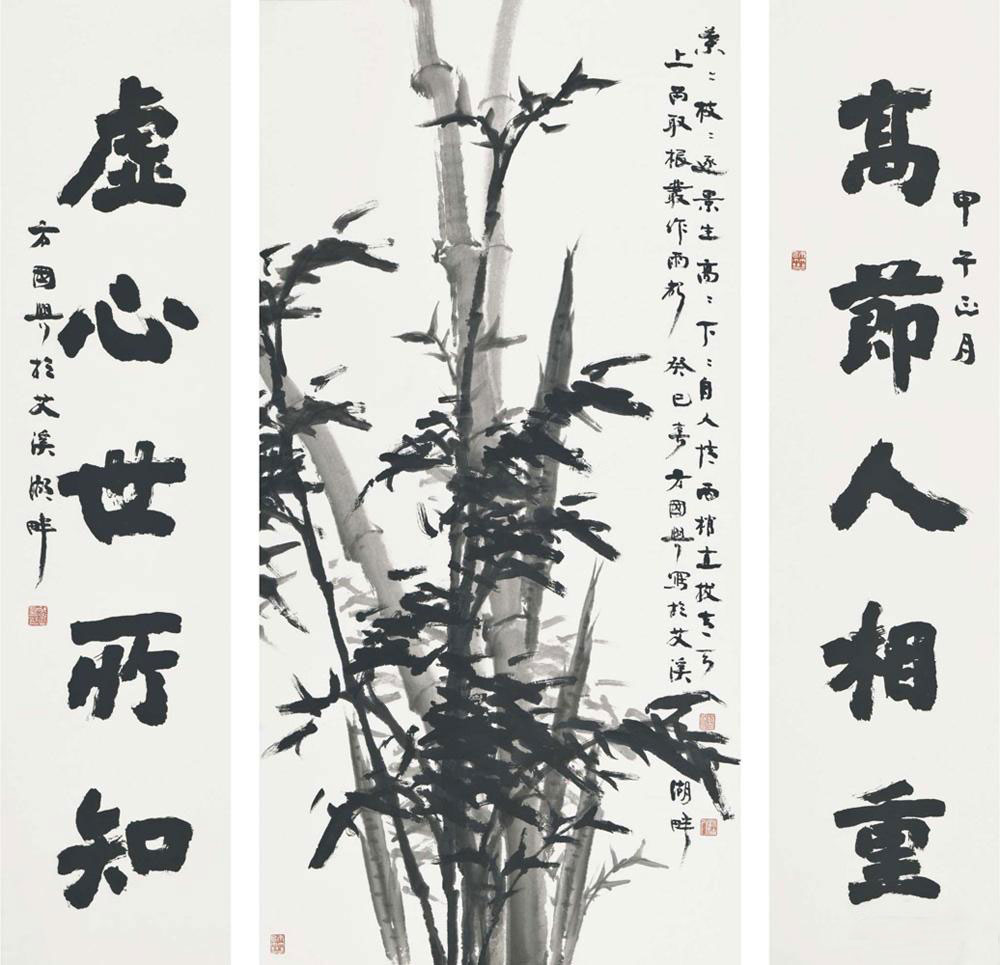 甲午正月
高節人相重
葉〻枝〻逐景生高〻下〻自人情兩梢直拔青
上留取根叢作雨 癸巳 方國興寫於艾溪湖畔
虛心世所知
方國興於艾溪湖畔